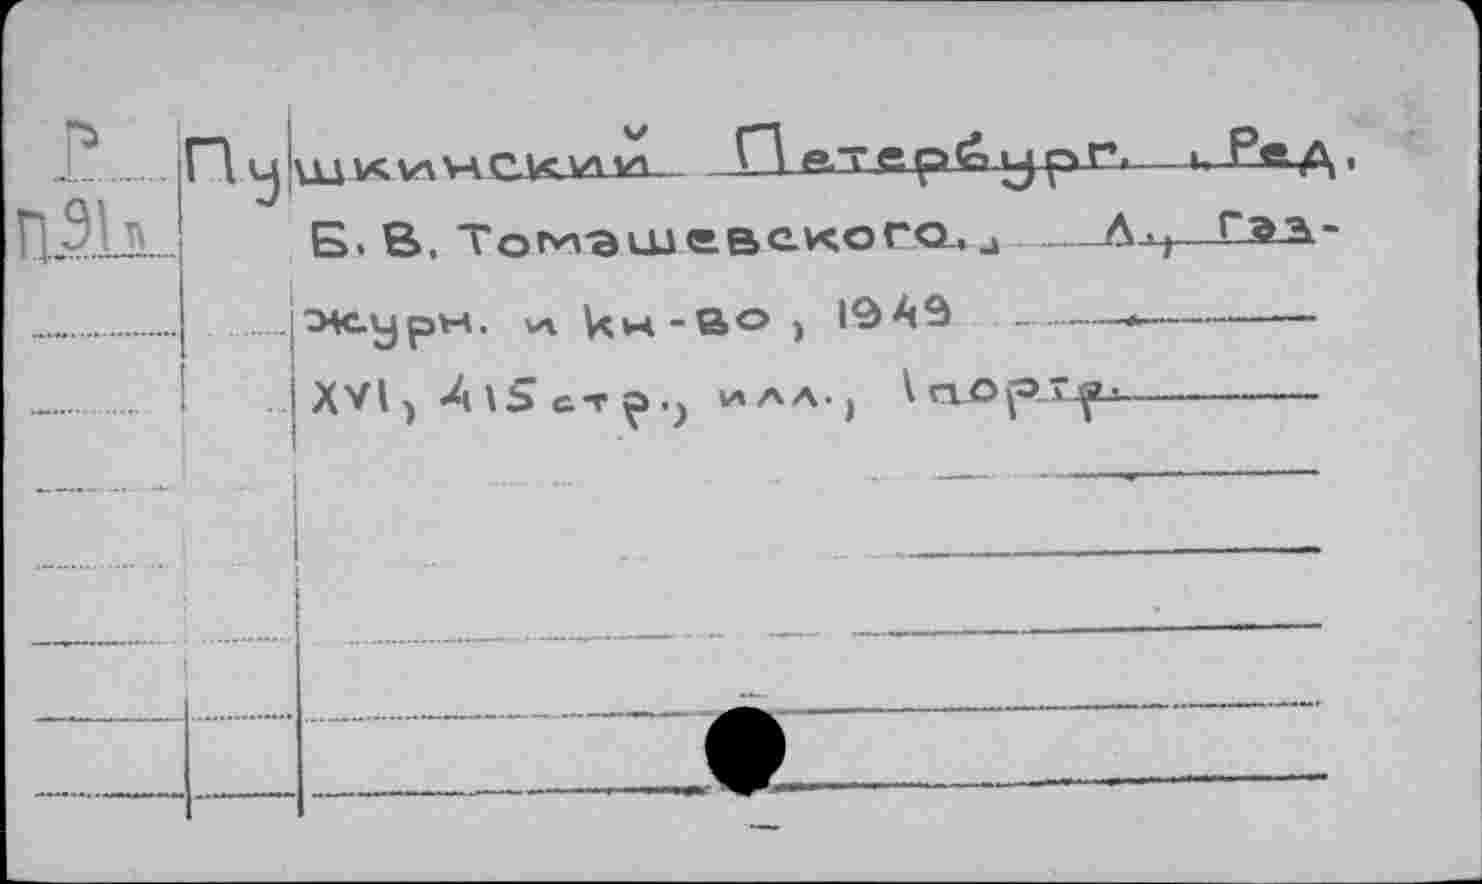 Р Пушкинский Петербург. Ред.
П91п Б. В. Томашевского., Л., Газ-
журн. и кн-во, 1949
XVI, 415 стр., илл., 1 портр.